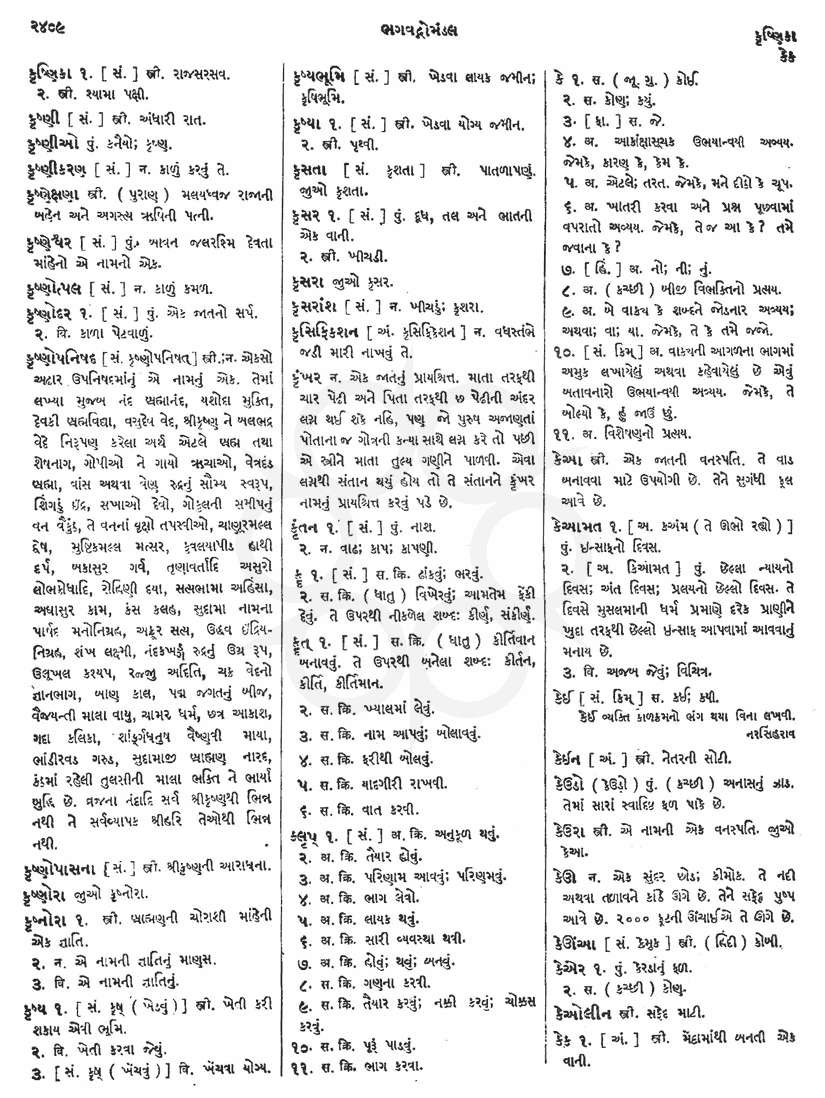 ૨૪૦૯
ભગવદ્ગોમંડલ
કૃષ્ણિકા
કેક
કૃષ્ણિકા ૧. [ સં. ] સ્ત્રી. રાજસરસવ.
૨. સ્ત્રી. શ્યામા પક્ષી.
કૃષ્ણી [ સં. ] સ્ત્રી. અંધારી રાત.
કૃષ્ણીઓ પું. કનૈયો; કૃષ્ણ.
કૃષ્ણીકરણ [ સં. ] ન. કાળું કરવું તે.
કૃષ્ણેક્ષણા સ્ત્રી. ( પુરાણ ) મલયધ્વજ રાજાની
બહેન અને અગસ્ત્ય ઋષિની પત્ની.
કૃષ્ણેશ્વર [ સં. ] પું. બાવન જલરશ્મિ દેવતા
માંહેનો એ નામનો એક.
કૃષ્ણોત્પલ [ સં. ] ન. કાળું કમળ.
કૃષ્ણોદર ૧. [ સં. ] પું. એક જાતનો સર્પ.
૨. વિ. કાળા પેટવાળું.
કૃષ્ણોપનિષદ [ સં. કૃષ્ણોપનિષત્ ] સ્ત્રી.;ન. એકસો
અઢાર ઉપનિષદમાંનું એ નામનું એક. તેમાં
લખ્યા મુજબ નંદ બ્રહ્માનંદ, યશોદા મુક્તિ,
દેવકી બ્રહ્મવિદ્યા, વસુદેવ વેદ, શ્રીકૃષ્ણ ને બલભદ્ર
વેદે નિરૂપણ કરેલા અર્થ એટલે બ્રહ્મ તથા
શેષનાગ, ગોપીઓ ને ગાયો ઋચાઓ, વેત્રદંડ
બ્રહ્મા, વાંસ અથવા વેણુ રુદ્રનું સૌમ્ય સ્વરૂપ,
શિંગડું ઇંદ્ર, સખાઓ દેવો, ગોકુલની સમીપનું
વન વૈકુંઠ, તે વનનાં વૃક્ષો તપસ્વીઓ, ચાણૂરમલ્લ
દ્વેષ, મુષ્ટિકમલ્લ મત્સર, કુવલયાપીડ હાથી
દર્પ, બકાસુર ગર્વ, તૃણાવર્તાદિ અસુરો
લોભક્રોધાદિ, રોહિણી દયા, સત્યભામા અહિંસા,
અઘાસુર કામ, કંસ કલહ, સુદામા નામના
પાર્ષદ મનોનિગ્રહ, અક્રૂર સત્ય, ઉદ્ધવ ઇંદ્રિય-
નિગ્રહ, શંખ લક્ષ્મી, નંદકખડ્ગ રુદ્રનું ઉગ્ર રૂપ,
ઉલૂખલ કશ્યપ, રજ્જુ અદિતિ, ચક્ર વેદનો
જ્ઞાનભાગ, બાણ કાલ, પદ્મ જગતનું બીજ,
વૈજયન્તી માલા વાયુ, ચામર ધર્મ, છત્ર આકાશ,
ગદા કલિકા, શાર્ઙ્ગધનુષ વૈષ્ણવી માયા,
ભાંડીરવડ ગરુડ, સુદામાજી બ્રાહ્મણ નારદ,
કંઠમાં રહેલી તુલસીની માલા ભક્તિ ને ભાર્યા
બુદ્ધિ છે. વ્રજના નંદાદિ સર્વ શ્રીકૃષ્ણથી ભિન્ન
નથી તે સર્વવ્યાપક શ્રીહરિ તેઓથી ભિન્ન
નથી.
કૃષ્ણોપાસના [ સં. ] સ્ત્રી. શ્રીકૃષ્ણની આરાધના.
કૃષ્ણોરા જુઓ કૃષ્નોરા.
કૃષ્નોરા ૧. સ્ત્રી. બ્રાહ્મણની ચોરાશી માંહેની
એક જ્ઞાતિ.
૨. ન. એ નામની જ્ઞાતિનું માણસ.
૩. વિ. એ નામની જ્ઞાતિનું.
કૃષ્ય ૧. [ સં. કૃષ્ ( ખેડવું ) ] સ્ત્રી. ખેતી કરી
શકાય એવી ભૂમિ.
૨. વિ. ખેતી કરવા જેવું.
૩. [ સં. કૃષ્ ( ખેંચવું ) ] વિ. ખેંચવા યોગ્ય.
કૃષ્યભૂમિ [ સં. ] સ્ત્રી. ખેડવા લાયક જમીન;
કૃષિભૂમિ.
કૃષ્યા ૧. [ સં. ] સ્ત્રી. ખેડવા યોગ્ય જમીન.
૨. સ્ત્રી. પૃથ્વી.
કૃસતા [ સં. કૃશતા ] સ્ત્રી. પાતળાપણું.
જુઓ કૃશતા.
કૃસર ૧. [ સં. ] પું. દૂધ, તલ અને ભાતની
એક વાની.
૨. સ્ત્રી. ખીચડી.
કૃસરા જુઓ કૃસર.
કૃસરાંશ [ સં. ] ન. ખીચડું; કૃશરા.
કૃસિફિકશન [ અં. કૃસિફિકેશન ] ન. વધસ્તંભે
જડી મારી નાખવું તે.
કૃંખર ન. એક જાતનું પ્રાયશ્ચિત્ત. માતા તરફથી
ચાર પેઢી અને પિતા તરફથી છ પેઢીની અંદર
લગ્ન થઈ શકે નહિ, પણ જો પુરુષ અજાણતાં
પોતાના જ ગોત્રની કન્યા સાથે લગ્ન કરે તો પછી
એ સ્ત્રીને માતા તુલ્ય ગણીને પાળવી. એવા
લગ્નથી સંતાન થયું હોય તો તે સંતાનને કૃંખર
નામનું પ્રાયશ્ચિત્ત કરવું પડે છે.
કૃંતન ૧. [ સં. ] પું. નાશ.
૨. ન. વાઢ; કાપ; કાપણી.
કૄ ૧. [ સં. ] સ. ક્રિ. ઢાંકવું; ભરવું.
૨. સ. ક્રિ. ( ધાતુ ) વિખેરવું; આમતેમ ફેંકી
દેવું. તે ઉપરથી નીકળેલ શબ્દઃ કીર્ણ, સંકીર્ણ.
કૄત્ ૧. [ સં. ] સ. ક્રિ. ( ધાતુ ) કીર્તિવાન
બનાવવું. તે ઉપરથી બનેલા શબ્દઃ કીર્તન,
કીર્તિ, કીર્તિમાન.
૨. સ. ક્રિ. ખ્યાલમાં લેવું.
૩. સ. ક્રિ. નામ આપવું; બોલાવવું.
૪. સ. ક્રિ. ફરીથી બોલવું.
૫. સ. ક્રિ. યાદગીરી રાખવી.
૬. સ. ક્રિ. વાત કરવી.
ક્લૃપ્ ૧. [ સં. ] અ. ક્રિ. અનુકૂળ થવું.
૨. અ. ક્રિ. તૈયાર હોવું.
૩. અ. ક્રિ. પરિણામ આવવું; પરિણમવું.
૪. અ. ક્રિ. ભાગ લેવો.
૫. અ. ક્રિ. લાયક થવું.
૬. અ. ક્રિ. સારી વ્યવસ્થા થવી.
૭. અ. ક્રિ. હોવું; થવું; બનવું.
૮. સ. ક્રિ. ગણના કરવી.
૯. સ. ક્રિ. તૈયાર કરવું; નક્કી કરવું; ચોક્કસ
કરવું.
૧૦. સ. ક્રિ. પૂરું પાડવું.
૧૧. સ. ક્રિ. ભાગ કરવા.
કે ૧. સ. ( જૂ. ગુ. ) કોઈ.
૨. સ. કોણ; કયું.
૩. [ ફા. ] સ. જે.
૪. અ. આકાંક્ષાસૂચક ઉભયાન્વયી અવ્યય.
જેમકે, કારણ કે, કેમ કે.
૫. અ. એટલે; તરત. જેમકે, મને દીઠો કે ચૂપ.
૬. અ. ખાતરી કરવા અને પ્રશ્ન પૂછવામાં
વપરાતો અવ્યય. જેમકે, તે જ આ કે ? તમે
જવાના કે ?
૭. [ હિં. ] અ. નો; ની; નું.
૮. અ. ( કચ્છી ) બીજી વિભક્તિનો પ્રત્યય.
૯. અ. બે વાક્ય કે શબ્દને જોડનાર અવ્યય;
અથવા; વા; યા. જેમકે, તે કે તમે જજો.
૧૦. [ સં. કિમ્ ] અ. વાક્યની આગળના ભાગમાં
અમુક લખાયેલું અથવા કહેવાયેલું છે એવું
બતાવનારો ઉભયાન્વયી અવ્યય. જેમકે, તે
બોલ્યો કે, હું જાઉં છું.
૧૧. અ. વિશેષણનો પ્રત્યય.
કેઆ સ્ત્રી. એક જાતની વનસ્પતિ. તે વાડ
બનાવવા માટે ઉપયોગી છે. તેને સુગંધી ફૂલ
આવે છે.
કેઆમત ૧. [ અ. કઅંમ ( તે ઊભો રહ્યો ) ]
પું. ઇન્સાફનો દિવસ.
૨. [ અ. કિઆમત ] પું. છેલ્લા ન્યાયનો
દિવસ; અંત દિવસ; પ્રલયનો છેલ્લો દિવસ. તે
દિવસે મુસલમાની ધર્મ પ્રમાણે દરેક પ્રાણીને
ખુદા તરફથી છેલ્લો ઇન્સાફ આપવામાં આવવાનું
મનાય છે.
૩. વિ. અજબ જેવું; વિચિત્ર.
કેઈ [ સં. કિમ્ ] સ. કઈ; કયી.
કેઈ વ્યક્તિ કાળક્રમનો ભંગ થયા વિના લખવી.
નરસિંહરાવ
કેઈન [ અં. ] સ્ત્રી. નેતરની સોટી.
કેઉડો ( કેઉડ઼ો ) પું. ( કચ્છી ) અનાસનું ઝાડ.
તેમાં સારાં સ્વાદિષ્ટ ફળ પાકે છે.
કેઉરા સ્ત્રી. એ નામની એક વનસ્પતિ. જુઓ
કેઆ.
કેઊ ન. એક સુંદર છોડ; કીમોક. તે નદી
અથવા તળાવને કાંઠે ઊગે છે. તેને સફેદ પુષ્પ
આવે છે. ૨૦૦૦ ફૂટની ઊંચાઈએ તે ઊગે છે.
કેઊંઆ [ સં. કેમુક ] સ્ત્રી. ( હિંદી ) કોબી.
કેએર ૧. પું. કેરડાનું ફળ.
૨. સ. ( કચ્છી ) કોણ.
કેઓલીન સ્ત્રી. સફેદ માટી.
કેક ૧. [ અં. ] સ્ત્રી. મેંદામાંથી બનતી એક
વાની.